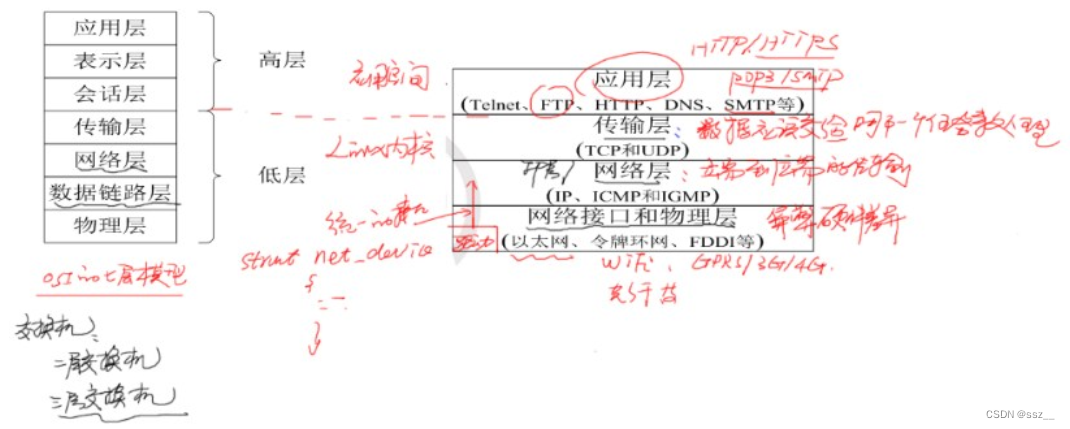 应用层
表示层
会话层
传输层
网络层
数据链路层
物理层
高层
低层
OSI的七层模型
交换机:
二层交换机
三层交换机
应用空间
Linux内核
统一的
struct net_device
{
}
HTTP/HTTPS
POP3/SMTP
应用层
(Telnet、FTP、HTTP、DNS、SMTP等)
传输层: 数据应该交给哪一个任务处理
(TCP和UDP)
网络层: 的
(IP、ICMP和IGMP)
网络接口和物理层 屏蔽硬件差异
驱动
(以太网、令牌环网、FDDI等)
WiFi、GPRS/3G/4G.
CSDN @ssz__